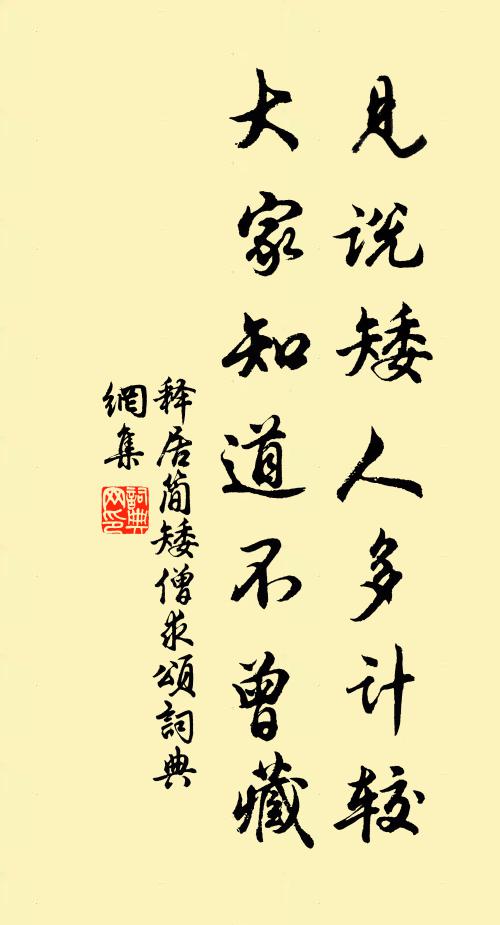 见说矮人多计较
大家知道不曾藏
释居简矮僧求颂詞典
網集
詞典
网印